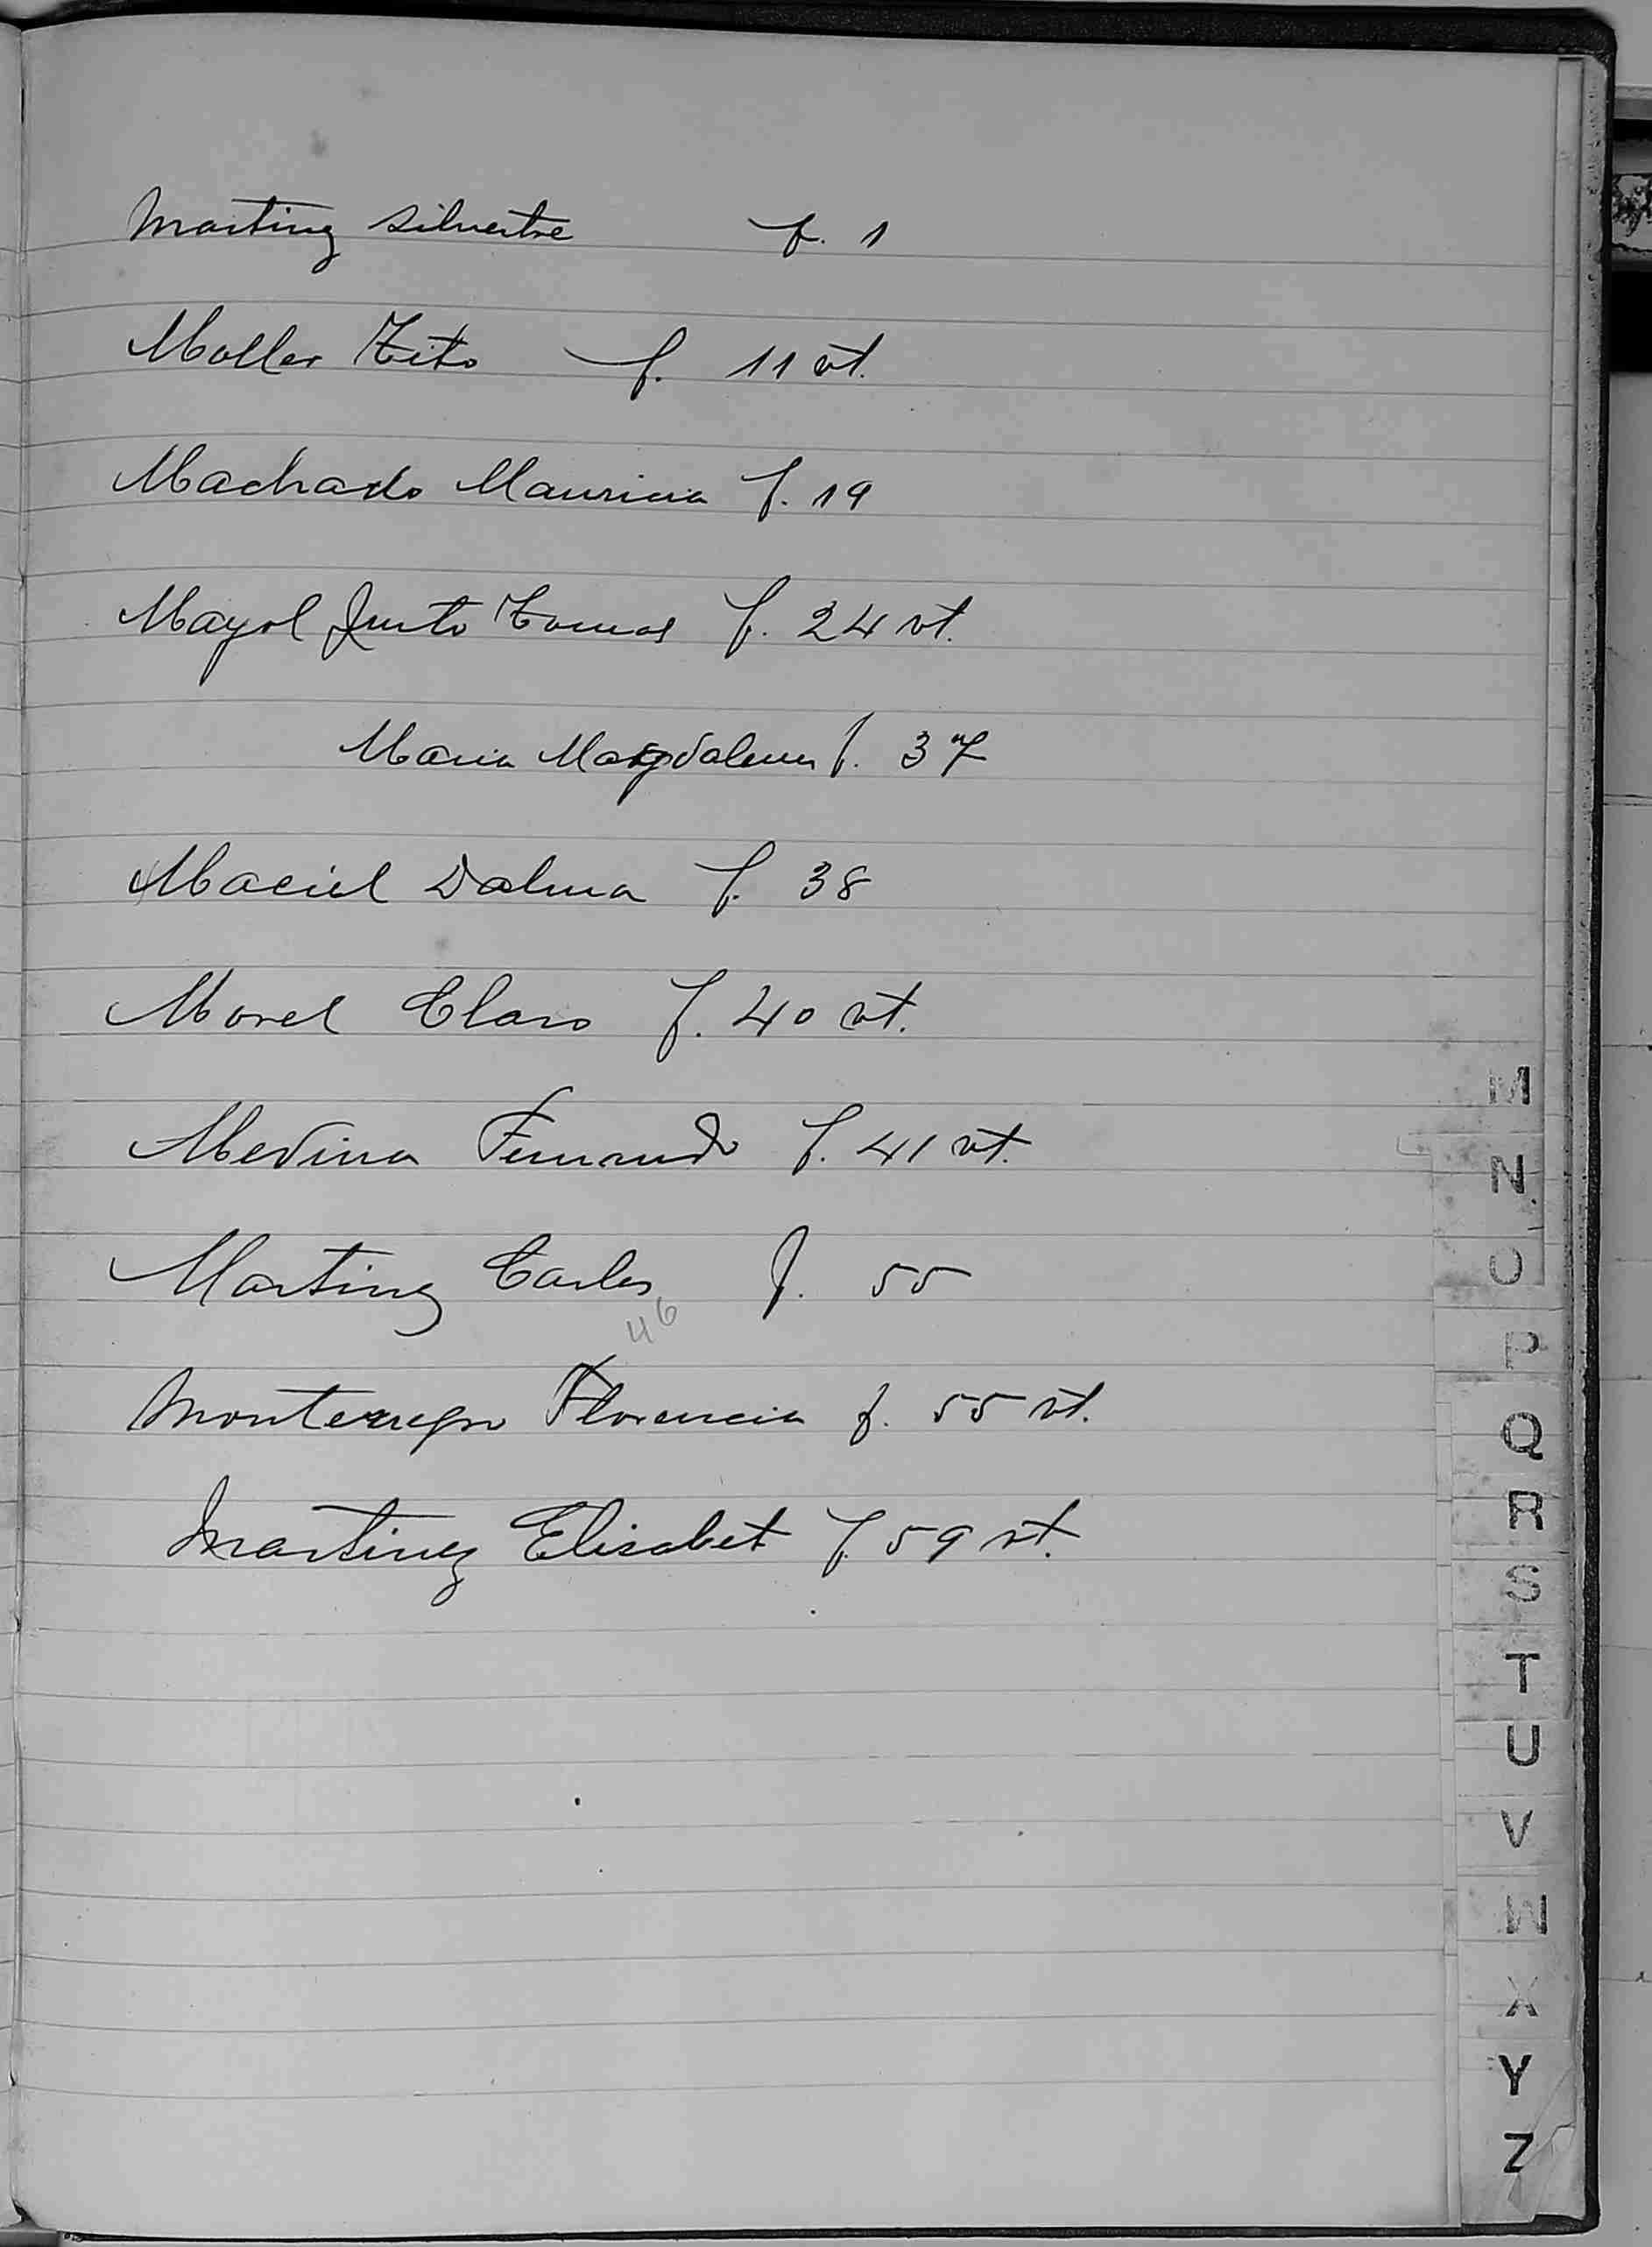 Martinez Silvestre f. 1
Moller Tito f. 11 vt.
Machado Mauricia f. 19
Mayol Justo Tomas f. 24 vt.
Maria Magdalena f. 37
Maciel Dalma f. 38
Morel Claro f. 40 vt.
Medina Fernando f. 41 vt.
Martinez Carlos f. 55
46
Montenegro Florencia f. 55 vt.
Martinez Elisabet f. 59 vt.
M
N
O
P
Q
R
S
T
U
V
W
X
Y
Z